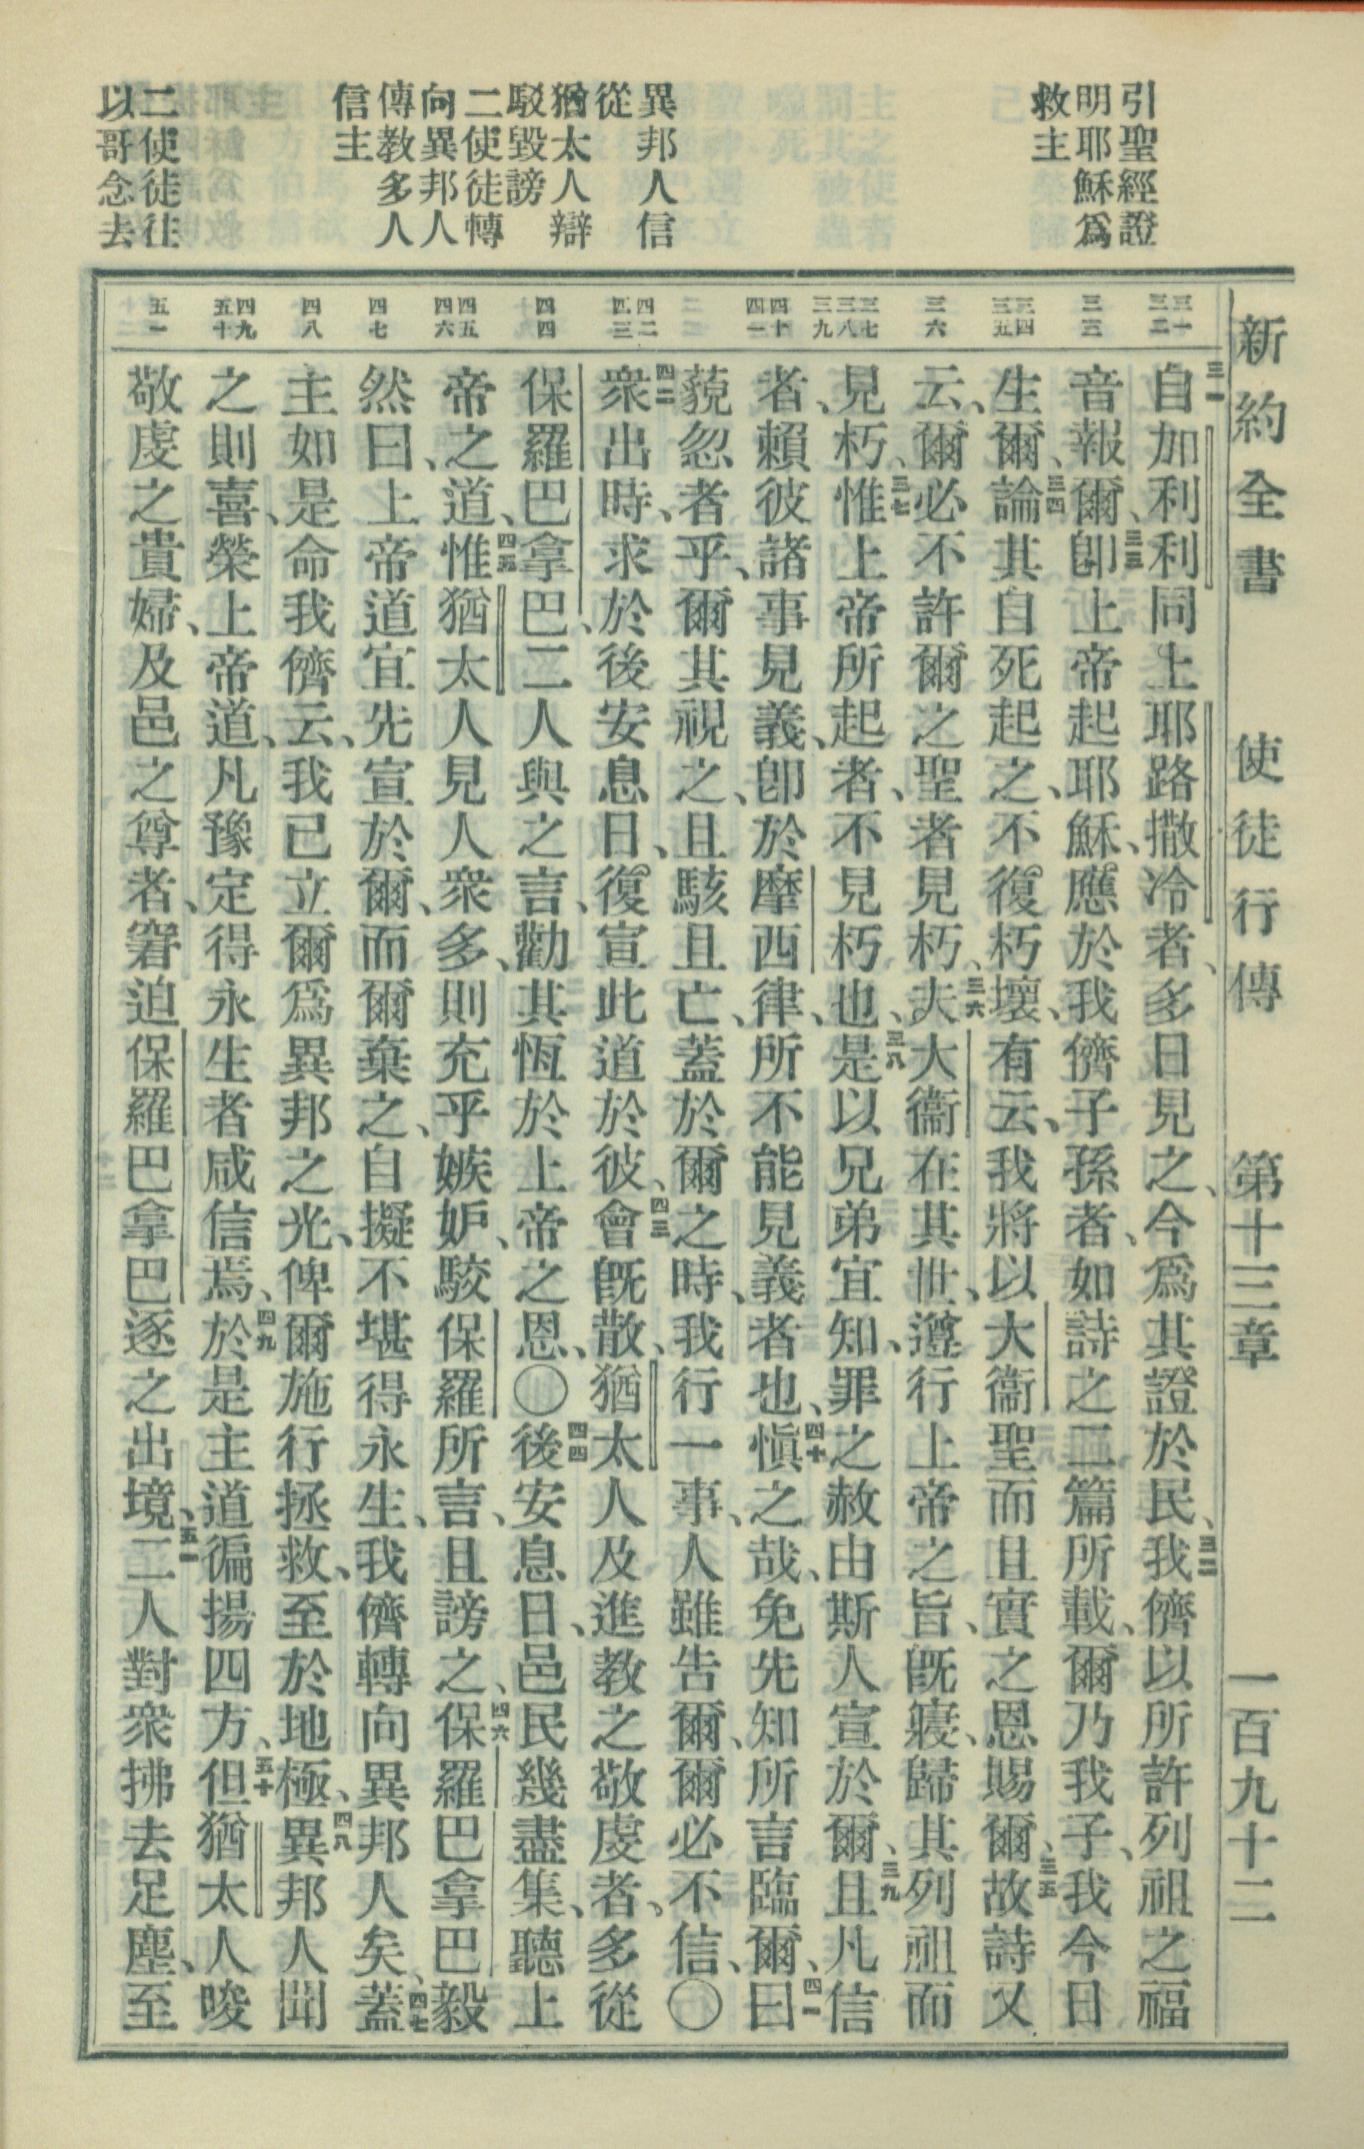 引聖經證
明耶穌爲
救主
異邦人信
從
猶太人辯
駁毀謗
二使徒轉
向異邦人
傳教多人
信主
二使徒往
以哥念去
新約全書 使徒行傳 第十三章 一百九十二
三一 三二
三三
三四 三五
三六
三七 三八 三九
四十 四一
四二 四三
四四
四五 四六
四七
四八
四九 五十
五一
三一自加利利同上耶路撒冷者、多日見之、今爲其證於民、三二我儕以所許列祖之福
音報爾、三三卽上帝起耶穌、應於我儕子孫者、如詩之二篇所載、爾乃我子、我今日
生爾、三四論其自死起之、不復朽壞、有云、我將以大衞聖而且實之恩賜爾、三五故詩又
云、爾必不許爾之聖者見朽、三六夫大衞在其世、遵行上帝之旨、旣寢、歸其列祖而
見朽、三七惟上帝所起者、不見朽也、三八是以兄弟宜知、罪之赦由斯人宣於爾、三九且凡信
者、賴彼諸事見義、卽於摩西律、所不能見義者也、四十愼之哉、免先知所言臨爾、四一曰
藐忽者乎、爾其視之、且駭且亡、蓋於爾之時、我行一事、人雖告爾、爾必不信、〇
四二衆出時、求於後安息日、復宣此道於彼、四三會旣散、猶太人及進教之敬虔者、多從
保羅巴拿巴、二人與之言、勸其恆於上帝之恩、〇四四後安息日、邑民幾盡集、聽上
帝之道、四五惟猶太人見人衆多、則充乎嫉妒、駮保羅所言、且謗之、四六保羅巴拿巴毅
然曰、上帝道宜先宣於爾、而爾棄之、自擬不堪得永生、我儕轉向異邦人矣、四七蓋
主如是命我儕云、我已立爾爲異邦之光、俾爾施行拯救、至於地極、四八異邦人聞
之則喜、榮上帝道、凡豫定得永生者咸信焉、四九於是主道徧揚四方、五十但猶太人唆
敬虔之貴婦、及邑之尊者、窘迫保羅巴拿巴逐之出境、五一二人對衆拂去足塵、至